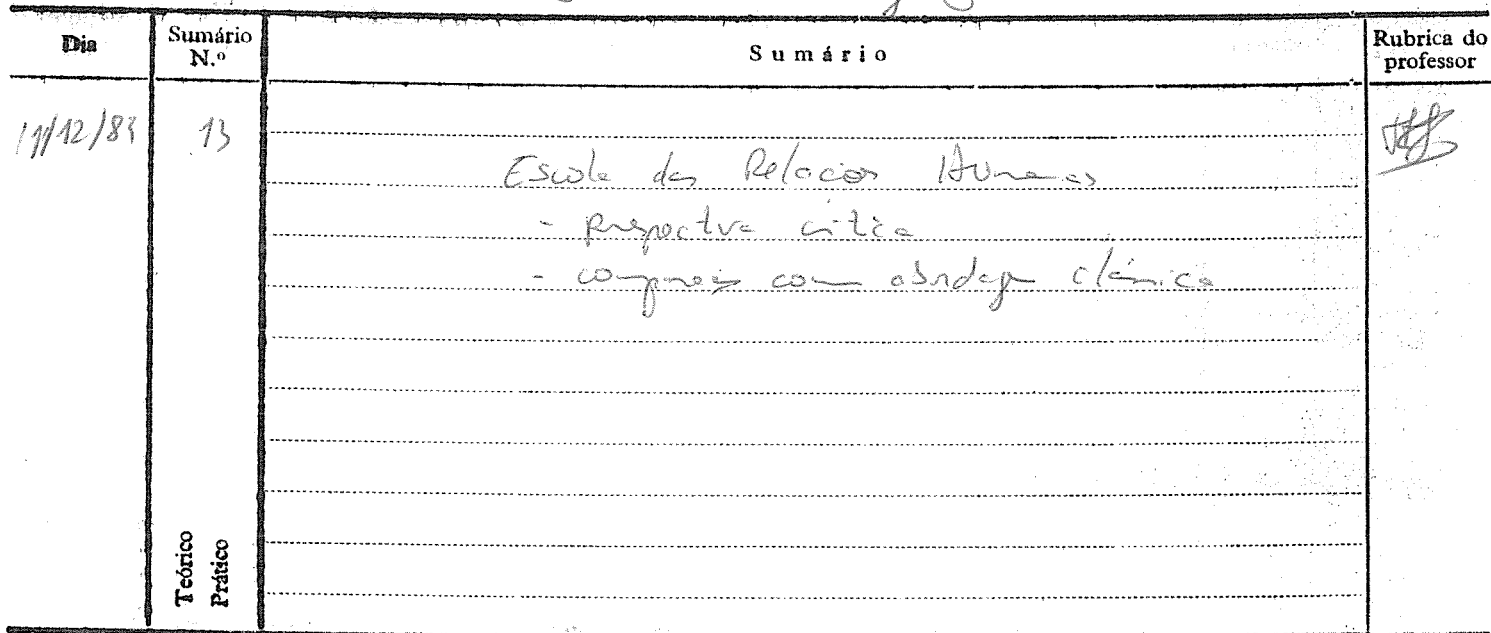 Dia
Sumário N.º
Sumário
Rubrica do professor
13
Escola das Relações Humanas
- perspectiva crítica
- comparação com abordagem clássica
Teórico
Prático